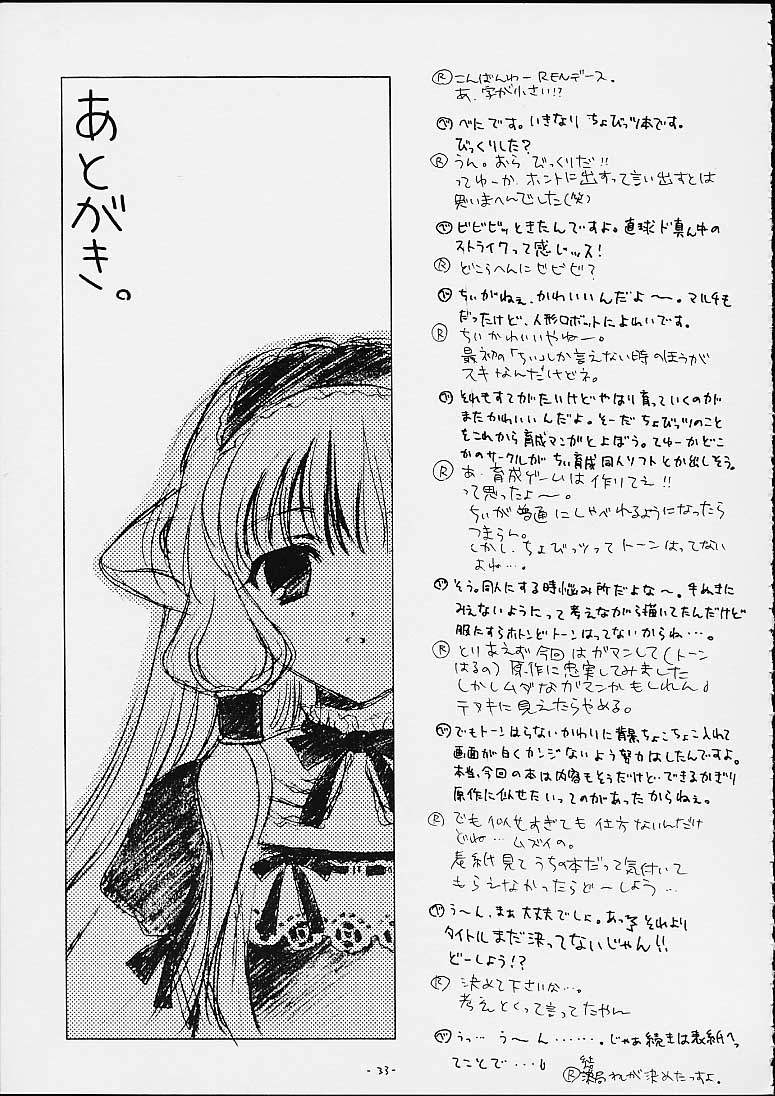 あとがき。
Ⓡ こんばんわー RENデース。
あ、字が小さい!?
べ べにです。いきなり ちょびっツ本です。
びっくりした?
Ⓡ うん。おら びっくりだ!!
ってゆーか ホントに出すって言い出すとは
思いまへんでした(笑)
べ ビビビッときたんですよ。直球ド真ん中の
ストライクって感じッス!
Ⓡ どこらへんにビビビ?
べ ちぃがねぇ、かわいいんだよ〜。マルチも
だったけど、人形ロボットによわいです。
Ⓡ ちぃかわいいやねー。
最初の「ちぃ」しか言えない時のほうが
スキなんだけどネ。
べ それもすてがたいけどやはり育っていくのが
またかわいいんだよ。そーだ ちょびっツのこと
をこれから育成マンガとよぼう。てゆーかどこ
かのサークルが ちぃ育成同人ソフトとか出しそう。
Ⓡ あ、育成ゲームは 作りてぇ!!
って思ったよ〜。
ちぃが普通にしゃべれるようになったら
つまらん。
しかし、ちょびっツってトーンはってない
よね…。
べ そう。同人にする時悩み所だよな〜。手ぬきに
みえないようにって考えながら描いてたんだけど
服にすらホトンどトーンはってないからね…。
Ⓡ とりあえず今回はガマンして(トーン
はるの) 原作に忠実してみました
しかしムダなガマンかもしれん♪
テヌキに見えたらやめる。
べ でもトーンはらないかわいに背景ちょこちょこ入れて
画面が白くカンジないよう努力はしたんですよ。
本当、今回の本は内容もそうだけど…できるかぎり
原作に似せたいってのがあったからねぇ。
Ⓡ でも 似せすぎても 仕方ないんだけ
どね… ムズイの。
表紙見てうちの本だって気付いて
もらえなかったらどーしよう…
べ う〜ん、まぁ大丈夫でしょ。あっ それより
タイトルまだ決ってないじゃん!!
どーしよう!?
Ⓡ 決めて下さいな…。
考えとくって言ってたやん
べ うっ… う〜ん……。じゃあ続きは表紙へっ
てことで…
Ⓡ 結局れんが決めたっすよ。
- 33 -